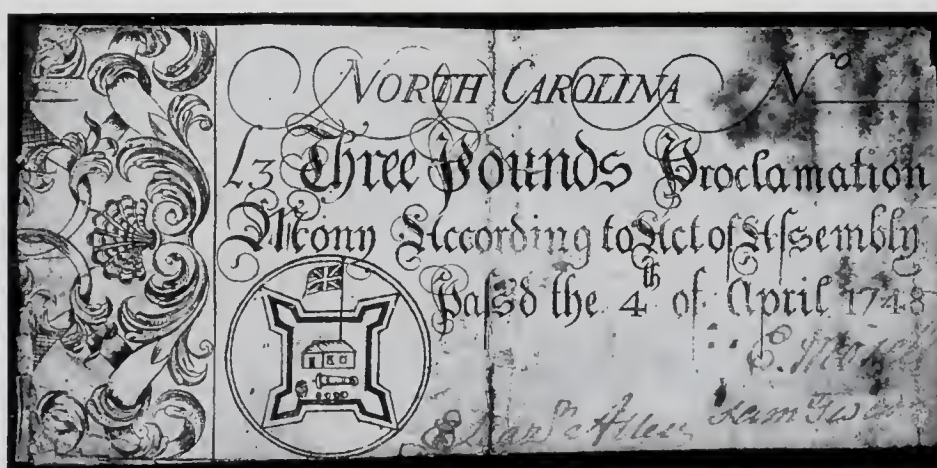 NORTH CAROLINA No
£3 Three Pounds Proclamation
Mony According to Act of Assembly
Pass'd the 4th of April 1748